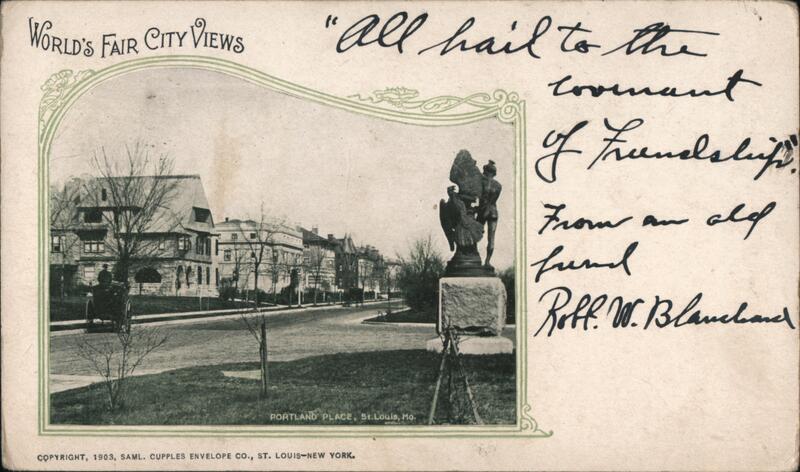 WORLD'S FAIR CITY VIEWS
"All hail to the
covenant
of Friendship".
From an old
friend
Robt. W. Blanchard
PORTLAND PLACE, St. Louis, Mo.
COPYRIGHT, 1903, SAML. CUPPLES ENVELOPE CO., ST. LOUIS—NEW YORK.